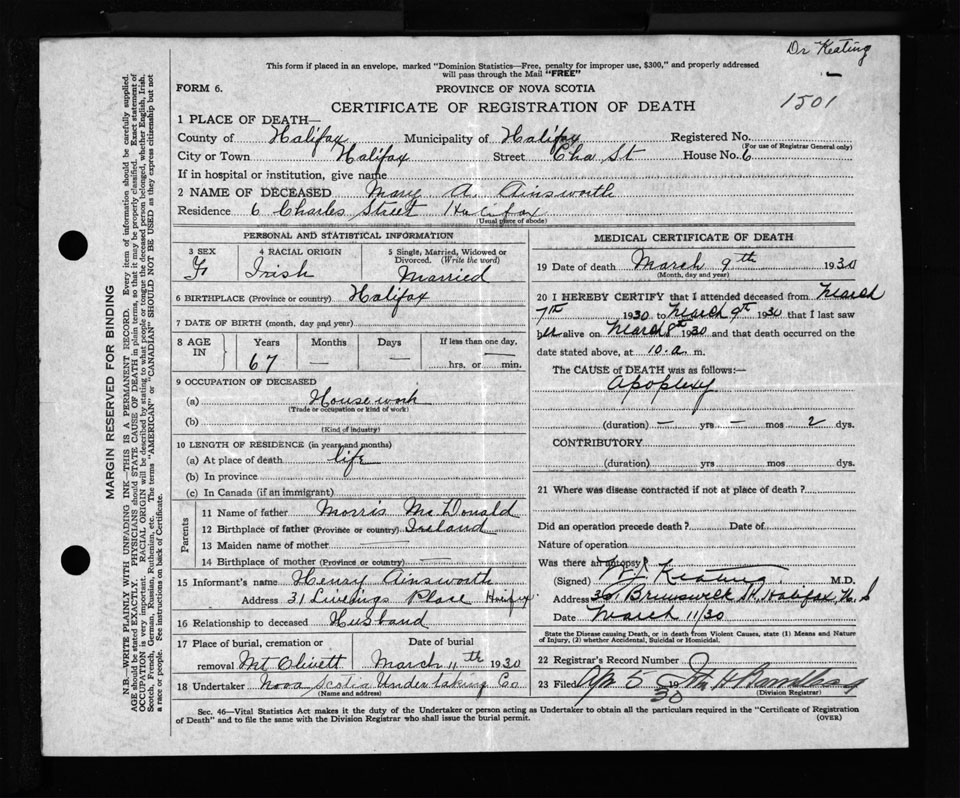 Dr Keating
This form if placed in an envelope, marked "Dominion Statistics—Free, penalty for improper use, $300," and properly addressed
will pass through the Mail "FREE"
FORM 6.
PROVINCE OF NOVA SCOTIA
1501
CERTIFICATE OF REGISTRATION OF DEATH
1 PLACE OF DEATH—
County of Halifax Municipality of Halifax Registered No.
(For use of Registrar General only)
City or Town Halifax Street Cha St House No. 6
If in hospital or institution, give name
2 NAME OF DECEASED Mary A. Ainsworth
Residence 6 Charles Street Halifax
(Usual place of abode)
PERSONAL AND STATISTICAL INFORMATION
3 SEX F 4 RACIAL ORIGIN Irish 5 Single, Married, Widowed or Divorced. (Write the word) Married
6 BIRTHPLACE (Province or country) Halifax
7 DATE OF BIRTH (month, day and year)
8 AGE IN Years Months Days If less than one day,
67 — — — hrs. or min.
9 OCCUPATION OF DECEASED
(a) Housework
(Trade or occupation or kind of work)
(b)
(Kind of industry)
10 LENGTH OF RESIDENCE (in years and months)
(a) At place of death life
(b) In province
(c) In Canada (if an immigrant)
Parents
11 Name of father Morris McDonald
12 Birthplace of father (Province or country) Ireland
13 Maiden name of mother —
14 Birthplace of mother (Province or country) —
15 Informant's name Henry Ainsworth
Address 31 Livelings Place Halifax
16 Relationship to deceased Husband
17 Place of burial, cremation or removal Mt Olivett Date of burial March 11th 1930
18 Undertaker Nova Scotia Undertaking Co
(Name and address)
MEDICAL CERTIFICATE OF DEATH
19 Date of death March 9th 1930
(Month, day and year)
20 I HEREBY CERTIFY that I attended deceased from March
7th 1930 to March 9th 1930 that I last saw
her alive on March 8th 1930 and that death occurred on
date stated above, at 10.a. m.
The CAUSE of DEATH was as follows:—
Apoplexy
(duration) — yrs — mos 2 dys.
CONTRIBUTORY
(duration) yrs mos dys.
21 Where was disease contracted if not at place of death?
Did an operation precede death? Date of
Nature of operation
Was there an autopsy?
(Signed) Keating M.D.
Address Brunswick St. Halifax, N. S
Date March 11/30
State the Disease causing Death, or in death from Violent Causes, state (1) Means and Nature
of Injury, (2) whether Accidental, Suicidal or Homicidal.
22 Registrar's Record Number
23 Filed Apr 5 1930
(Division Registrar)
Sec. 46—Vital Statistics Act makes it the duty of the Undertaker or person acting as Undertaker to obtain all the particulars required in the "Certificate of Registration
of Death" and to file the same with the Division Registrar who shall issue the burial permit.
(OVER)
MARGIN RESERVED FOR BINDING
N.B.—WRITE PLAINLY WITH UNFADING INK—THIS IS A PERMANENT RECORD. Every item of information should be carefully supplied.
AGE should be stated EXACTLY. PHYSICIANS should STATE CAUSE OF DEATH in plain terms, so that it may be properly classified. Exact statement of
OCCUPATION is very important. RACIAL ORIGIN will be described by stating to what people or tongue the deceased person belonged, whether English, Irish,
Scotch, French, German, Russian, Ruthenian, etc. The terms "AMERICAN" or "CANADIAN" SHOULD NOT BE USED as they express citizenship but not
a race or people. See instructions on back of Certificate.